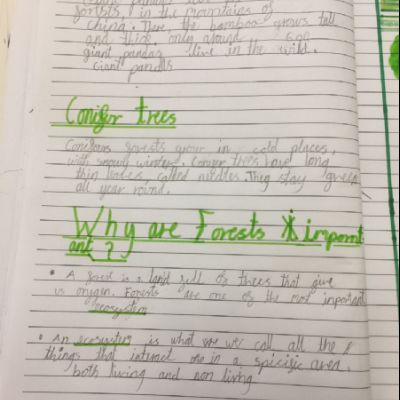 forests in the mountains of
china. There the bamboo grows tall
and thick. only around 600
giant pandas live in the wild.
Giant pandas
Conifur trees
forests grow in cold places,
with snowy winters. Conifer trees have long
thin leaves, called needles. They stay green
all year round.
Why are Forests importnt
ant(?)
• A forest is a land full of trees that give
us oxygen. Forests are one of the most inportant
ecosystem
• An ecosystem is what we we call all the
things that interact one in a spicific area,
both living and non living